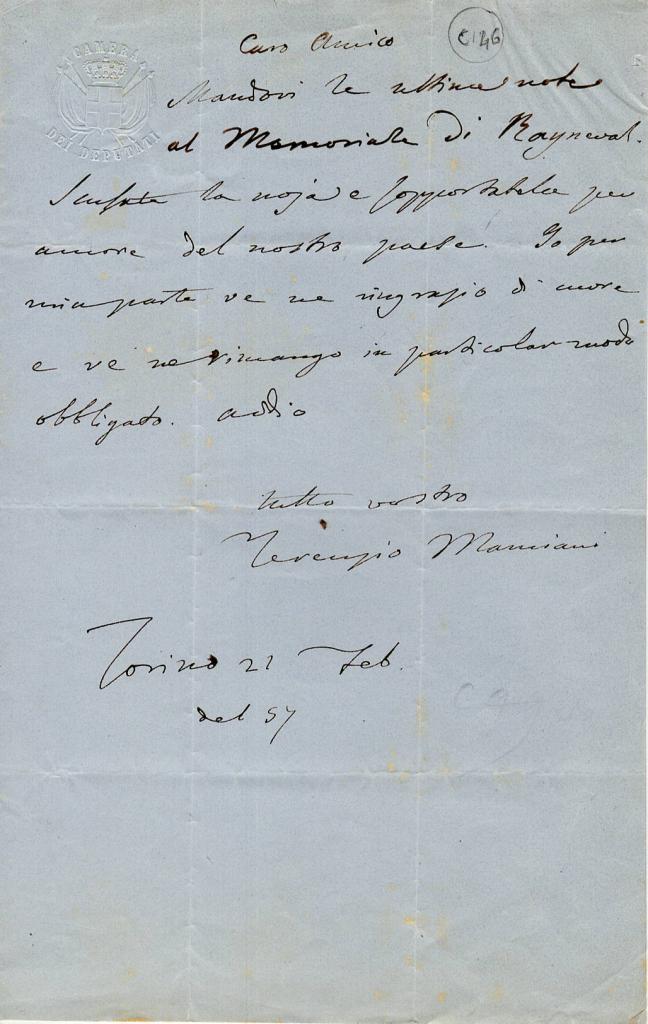 CAMERA
DEI DEPUTATI
C146
Caro Amico
Mandovi le ultime note
al Memoriale di Rayneval.
Scusate la noja e sopportatela per
amore del nostro paese. Io per
mia parte ve ne ringrazio di cuore
e ve ne rimango in particolar modo
obbligato. addio
tutto vostro
Terenzio Mamiani
Torino 21 Feb.
del 57